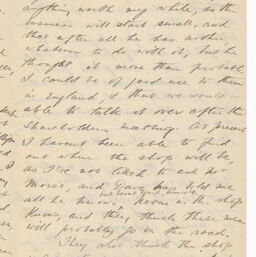 anything worth my while, as the
business will start small, and
that after all he has nothing
whatever to do with it, but he
thought it more than probable
I could be of good use to them
in England, & that we would be
able to talk it over after the
Shareholders meeting. At present
I havent been able to find
out where the shop will be,
as I've not liked to ask Mr
Morse, and Dave has told me
all he knows,
None in the shop
know, and they think these men
will probably go on the road.
They also think the shop